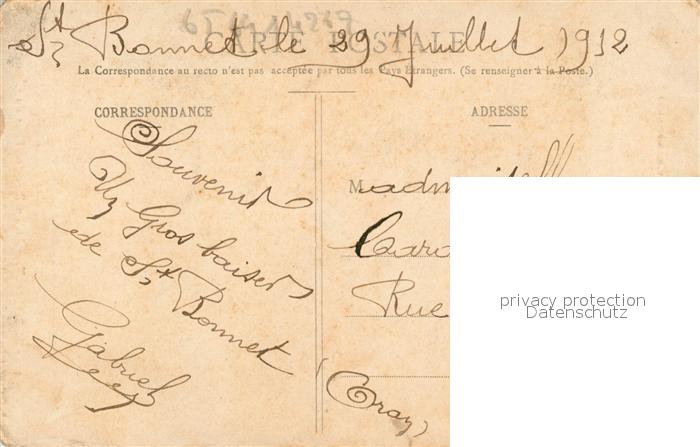 CARTE POSTALE
St Bonnet le 29 Juillet 1912
La Correspondance au recto n'est pas acceptée par tous les Pays Étrangers. (Se renseigner à la Poste.)
CORRESPONDANCE
Souvenir
Un Gros baiser
de St Bonnet
Gabriel
ADRESSE
Mademoiselle
Rue
privacy protection
Datenschutz